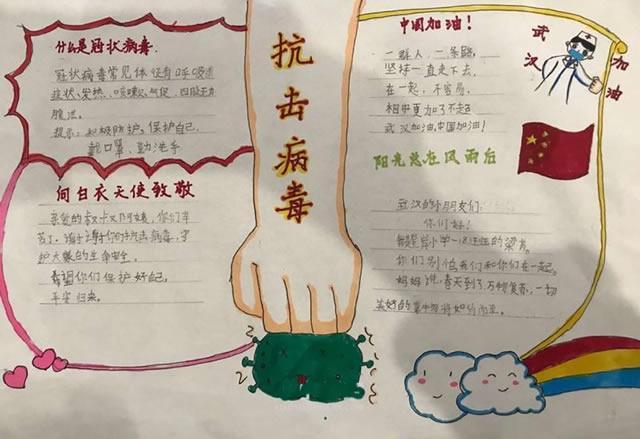 什么是冠状病毒
冠状病毒常见体征有呼吸道
症状、发热、咳嗽、气促、四肢无力
腹泄。
提示:积极防护,保护自己,
戴口罩、勤洗手
向白衣天使致敬
亲爱的叔叔阿姨,你们辛
苦了。
大家的生命安全,
希望你们保护好自己,
平安归来。
抗击病毒
中国加油!
一群人,一条路,
坚持一直走下去,
在一起,不容易,
相守更加了不起
武汉加油,中国加油!
武汉
加油
阳光总在风雨后
武汉的小朋友们:
你们好!
你们别怕我们和你们在一起。
妈妈说,春天到了,万物复苏,一切
美好的事物将如约而至。